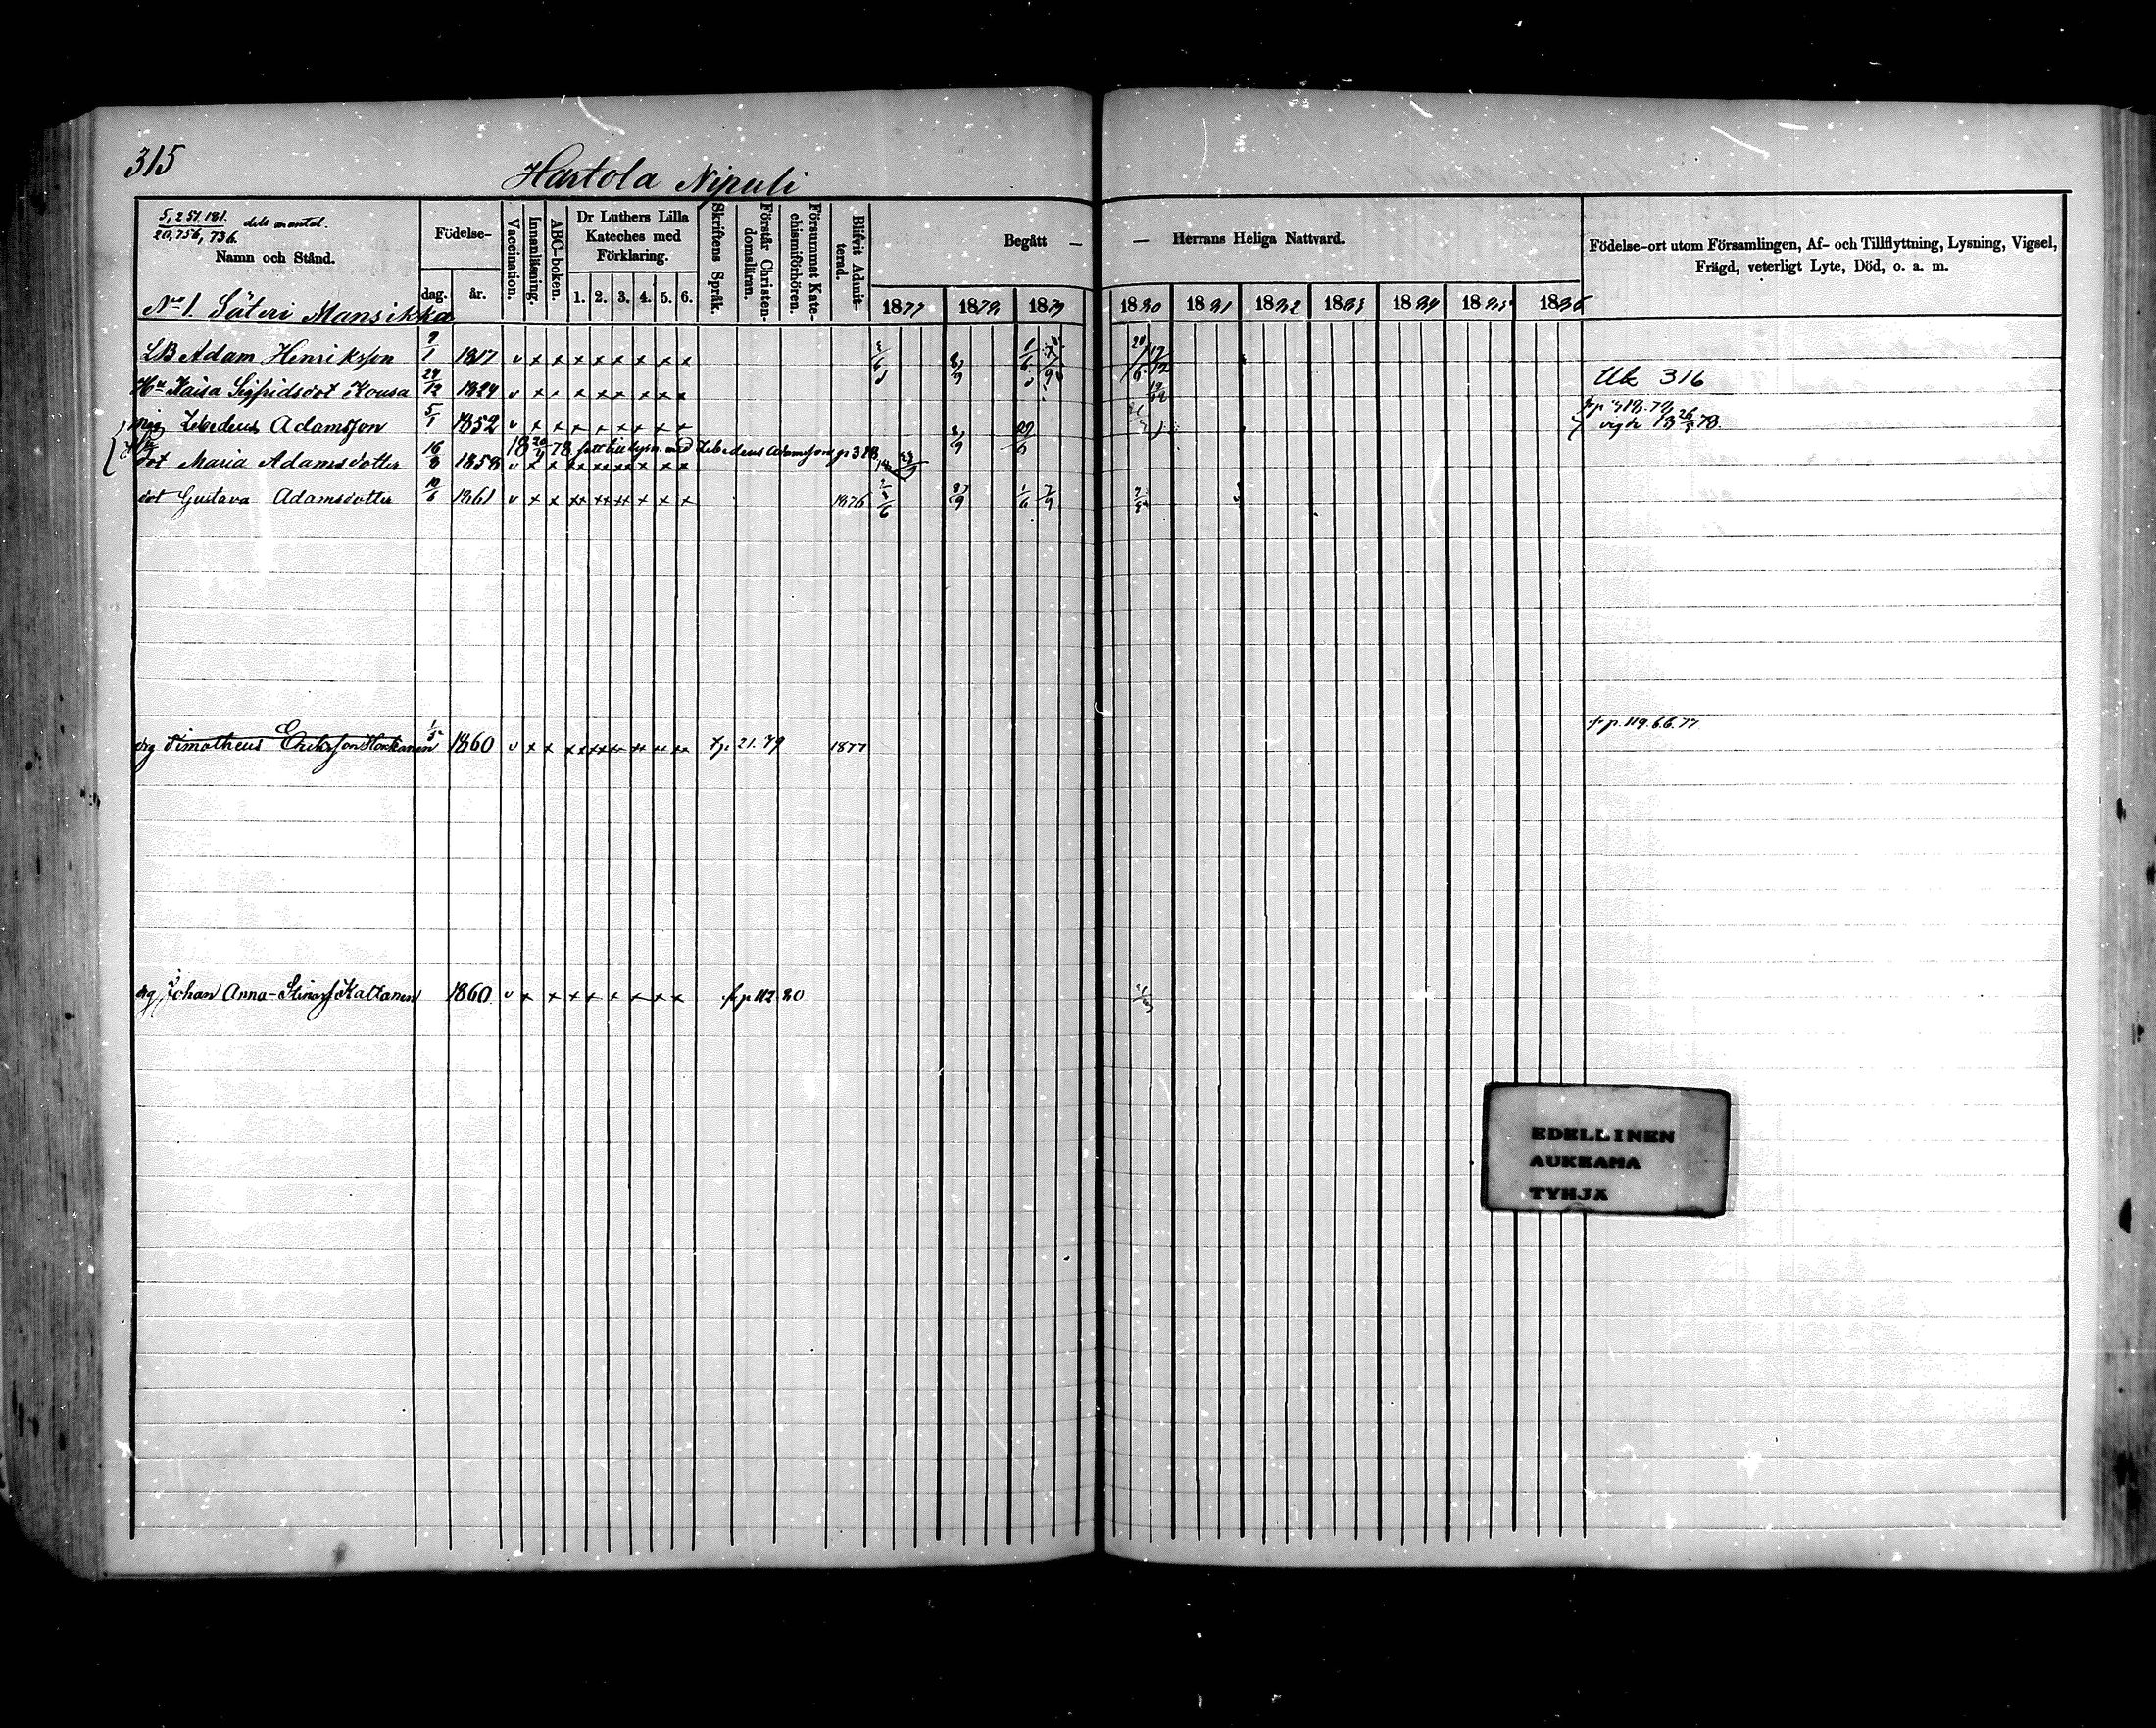 315
Hartola Nipuli
5,251,181. dels mantal.
20,756,736.
Namn och Stånd.
Födelse-
dag. år.
Vaccination.
Innanläsning.
ABC-boken.
Dr Luthers Lilla
Kateches med
Förklaring.
1. 2. 3. 4. 5. 6.
Skriftens Språk.
Förstår Christen-
domsläran.
Försummat Kate-
chismiförhören.
Blifvit Admit-
terad.
Begått — — Herrans Heliga Nattvard.
1877 1878 1879 1880 1881 1882 1883 1884 1885 1886
Födelse-ort utom Församlingen, Af- och Tillflyttning, Lysning, Vigsel,
Frägd, veterligt Lyte, Död, o. a. m.
No 1. Säteri Mansikka
LB Adam Henriksson 1817 v x x x x x x x x
Hu Kaisa Sigfridsdot Kousa 24/12 1824 v x x x x x x x x
Uk 316
Zebedeus Adamsson 5/1 1852 v x x x x x x x x
vigde 18 26/5 78.
18 20/4 78 lysn. med Zebedeus Adamsson p 318
dot Maria Adamsdotter 16/8 1858 v x x x x x x x x
dot Gustava Adamsdotter 10/6 1861 v x x x x x x x x 1876
drg Timotheus Eriksson Honkanen 1860 v x x x x x x x x 21.79 1877
fr p. 119. 6.6.77
drg Johan Anna-Stinas Kaltanen 1860 v x x x x x x x x fr p 112 80
EDELLINEN
AUKEAMA
TYHJÄ